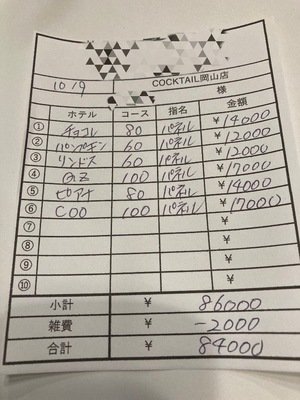 COCKTAIL岡山店
10/9 様
ホテル コース 指名 金額
① チョコレ 80 パネル ¥14000
② パンプキン 60 パネル ¥12000
③ リンドス 60 パネル ¥12000
④ QZ 100 パネル ¥17000
⑤ ピアナ 80 パネル ¥14000
⑥ COO 100 パネル ¥17000
⑦ ¥
⑧ ¥
⑨ ¥
⑩ ¥
小計 ¥ 86000
雑費 ¥ -2000
合計 ¥ 84000